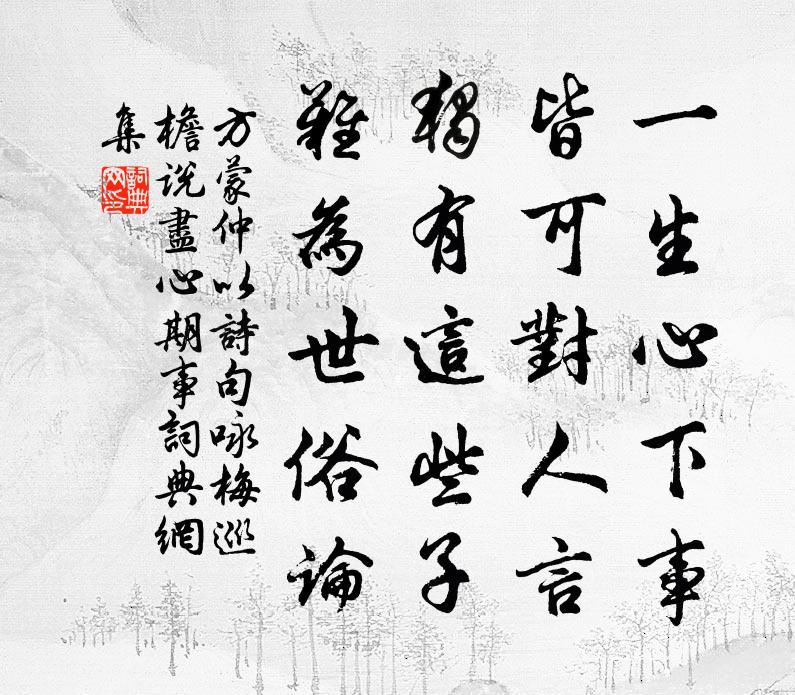 一生心下事
皆可對人言
獨有這些子
難為世俗論
方蒙仲以詩句咏梅巡
檐說盡心期事詞典網
集
詞典
网印